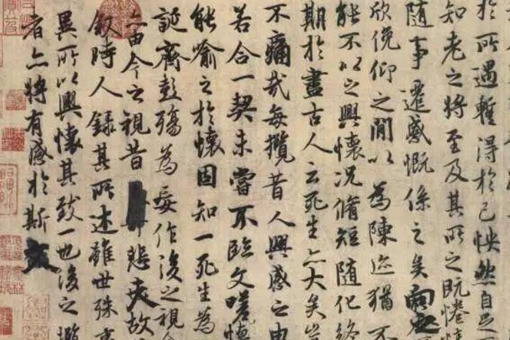 於所遇暫得於己怏然自足
知老之將至及其所之既惓情
隨事遷感慨係之矣向之
欣俛仰之閒以為陳迹猶不
能不以之興懷況脩短隨化終
期於盡古人云死生亦大矣豈
不痛哉每攬昔人興感之由
若合一契未嘗不臨文嗟悼
能喻之於懷固知一死生為
誕齊彭殤為妄作後之視今
亦由今之視昔悲夫故
敘時人錄其所述雖世殊事
異所以興懷其致一也後之攬
者亦將有感於斯文